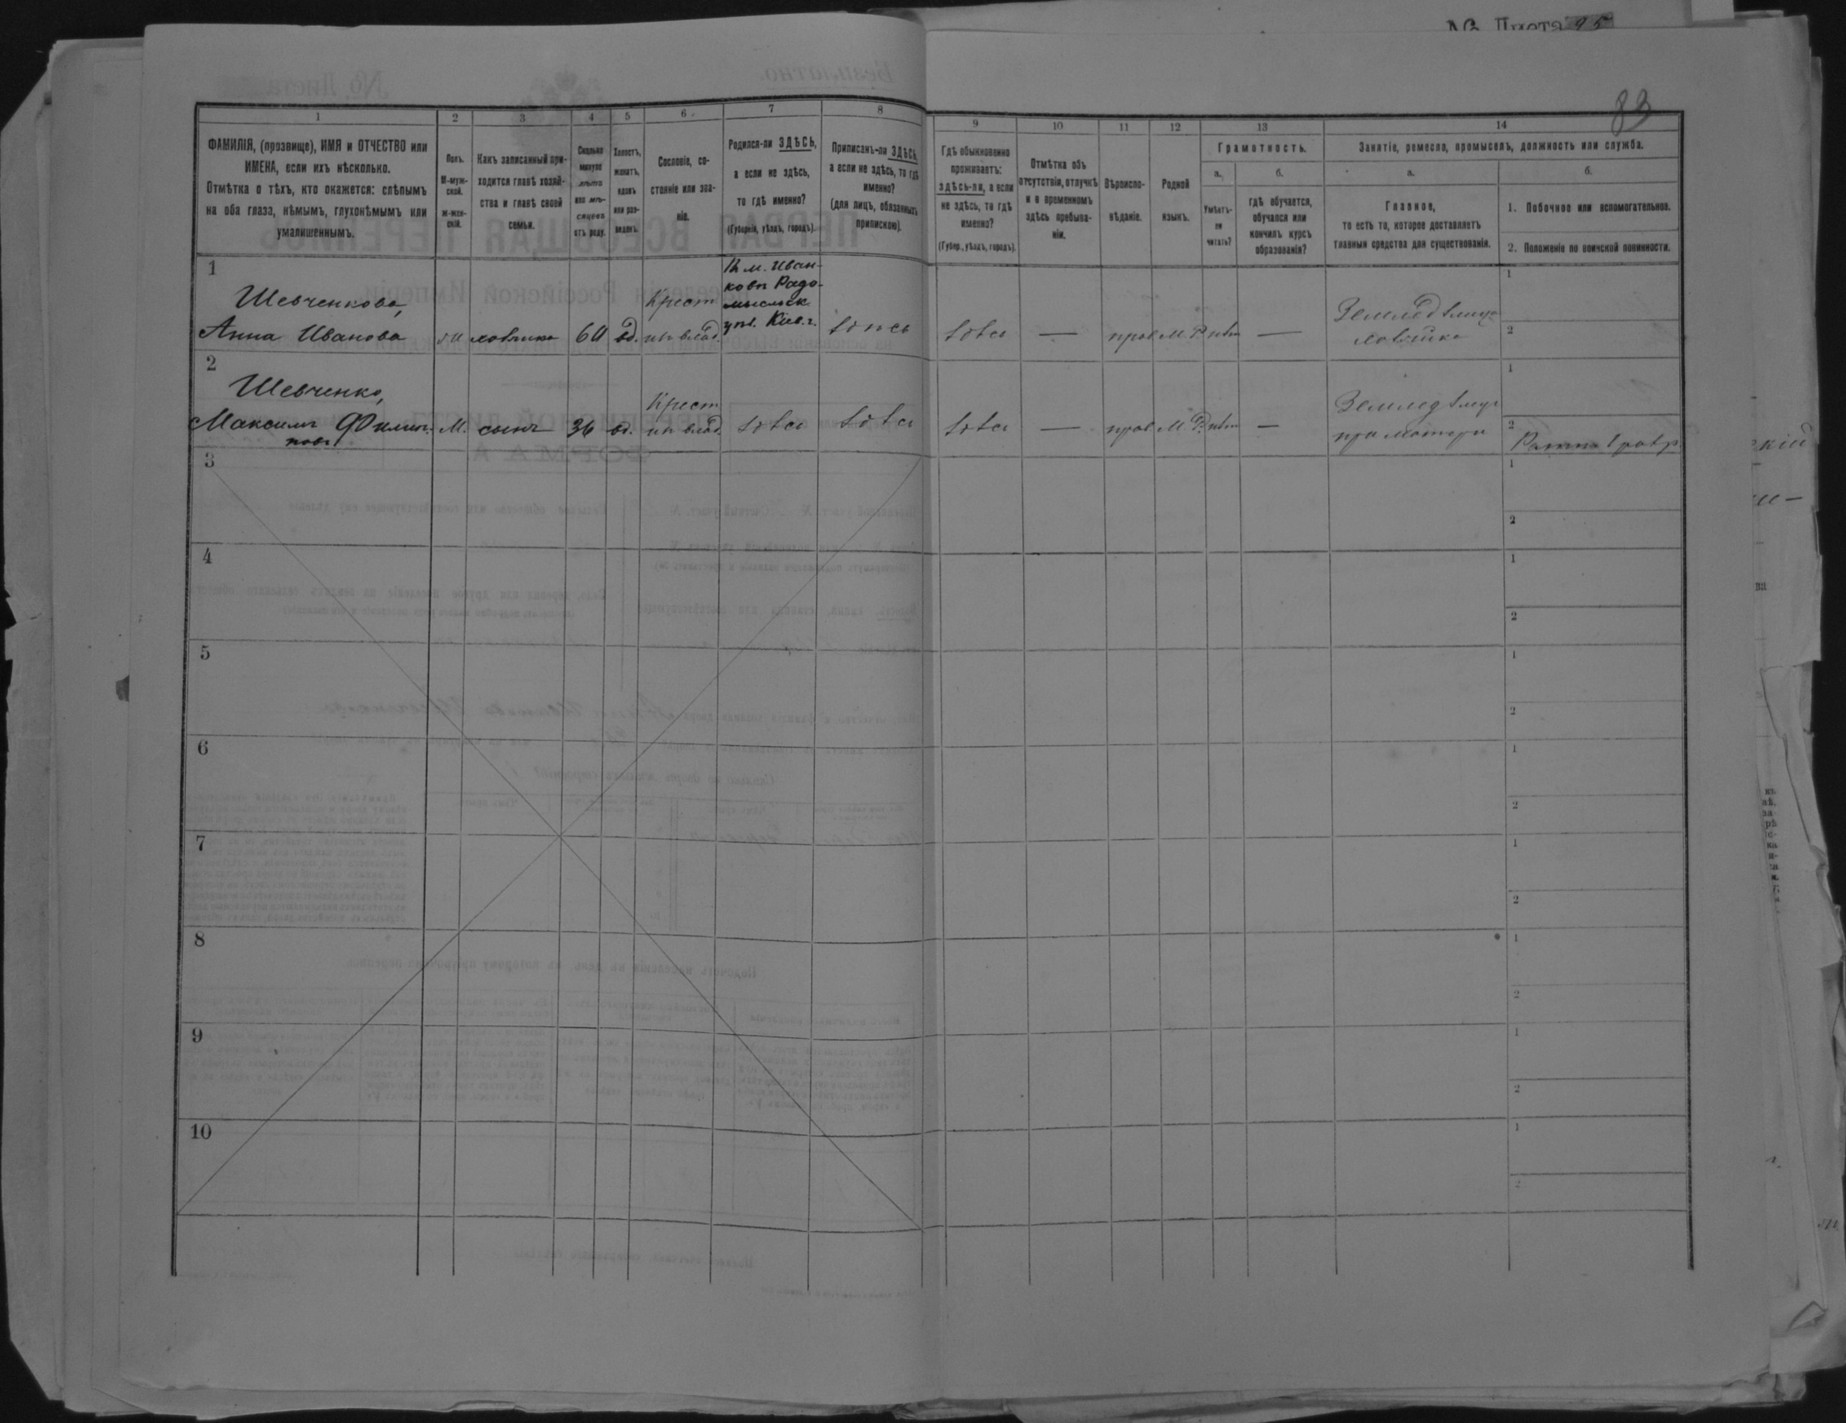 № Листа 95
83
1
2
3
4
5
6
7
8
9
10
11
12
13
14
ФАМИЛІЯ, (прозвище), ИМЯ и ОТЧЕСТВО или
ИМЕНА, если ихъ нѣсколько.
Отмѣтка о тѣхъ, кто окажется: слѣпымъ
на оба глаза, нѣмымъ, глухонѣмымъ или
умалишеннымъ.
Полъ.
М-муж-
ской.
ж-жен-
скій.
Какъ записанный при-
ходится главѣ хозяй-
ства и главѣ своей
семьи.
Сколько
минуло
лѣтъ
или мѣ-
сяцевъ
отъ роду.
Холостъ,
женатъ,
вдовъ
или раз-
веденъ.
Сословіе, со-
стояніе или зва-
ніе.
Родился-ли ЗДѢСЬ,
а если не здѣсь,
то гдѣ именно?
(Губернія, уѣздъ, городъ).
Приписанъ-ли ЗДѢСЬ,
а если не здѣсь, то гдѣ
именно?
(для лицъ, обязанныхъ
припискою).
Гдѣ обыкновенно
проживаетъ:
здѣсь-ли, а если
не здѣсь, то гдѣ
именно?
(Губер., уѣздъ, городъ).
Отмѣтка объ
отсутствіи, отлучкѣ
и о временномъ
здѣсь пребыва-
ніи.
Вѣроиспо-
вѣданіе.
Родной
языкъ.
Грамотность.
а.
Умѣетъ-
ли
читать?
б.
гдѣ обучается,
обучался или
кончилъ курсъ
образованія?
Занятіе, ремесло, промыселъ, должность или служба.
а.
Главное,
то есть то, которое доставляетъ
главныя средства для существованія.
б.
1. Побочное или вспомогательное.
2. Положеніе по воинской повинности.
1
Шевченкова,
Анна Иванова
хозяйка
64
вд.
Крест
из влад.
В м. Иван-
ковѣ Радо-
мысльск
уѣз. Кіев. г.
здѣсь
здѣсь
—
прав
М. Р.
нѣт
—
Земледѣлица
хозяйка
1
2
2
Шевченко,
Максимъ Филип-
повъ
М.
сынъ
34
вд.
Крест
из влад.
здѣсь
здѣсь
здѣсь
—
прав
М. Р.
нѣт
—
Земледѣлец
при матери
1
2
3
1
2
4
1
2
5
1
2
6
1
2
7
1
2
8
1
2
9
1
2
10
1
2